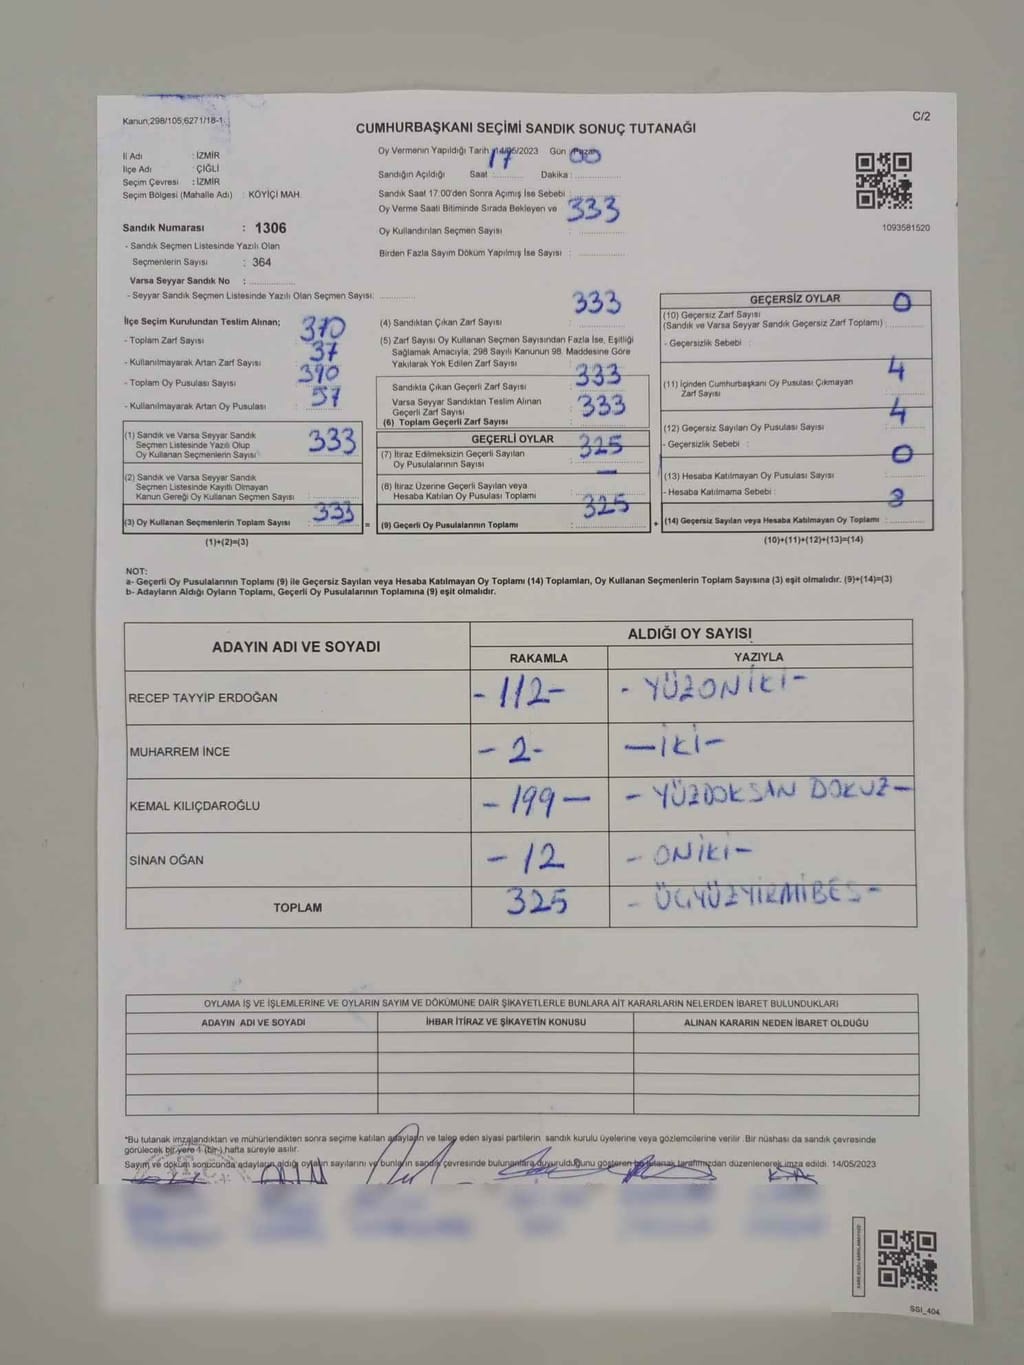 Kanun;298/105,6271/18-1
C/2
CUMHURBAŞKANI SEÇİMİ SANDIK SONUÇ TUTANAĞI
İl Adı : İZMİR
İlçe Adı : ÇİĞLİ
Seçim Çevresi : İZMİR
Seçim Bölgesi (Mahalle Adı) : KÖYİÇİ MAH.
Oy Vermenin Yapıldığı Tarih :14/05/2023 Gün :Pazar
Sandığın Açıldığı Saat 17 Dakika : 00
Sandık Saat 17.00'den Sonra Açımış İse Sebebi :
Oy Verme Saati Bitiminde Sırada Bekleyen ve
Oy Kullandırılan Seçmen Sayısı : 333
Birden Fazla Sayım Döküm Yapılmış İse Sayısı :
1093581520
Sandık Numarası : 1306
- Sandık Seçmen Listesinde Yazılı Olan
Seçmenlerin Sayısı : 364
Varsa Seyyar Sandık No :
- Seyyar Sandık Seçmen Listesinde Yazılı Olan Seçmen Sayısı:
İlçe Seçim Kurulundan Teslim Alınan;
- Toplam Zarf Sayısı : 370
- Kullanılmayarak Artan Zarf Sayısı : 37
- Toplam Oy Pusulası Sayısı : 390
- Kullanılmayarak Artan Oy Pusulası : 57
(1) Sandık ve Varsa Seyyar Sandık
Seçmen Listesinde Yazılı Olup
Oy Kullanan Seçmenlerin Sayısı : 333
(2) Sandık ve Varsa Seyyar Sandık
Seçmen Listesinde Kayıtlı Olmayan
Kanun Gereği Oy Kullanan Seçmen Sayısı :
(3) Oy Kullanan Seçmenlerin Toplam Sayısı : 333 =
(1)+(2)=(3)
(4) Sandıktan Çıkan Zarf Sayısı : 333
(5) Zarf Sayısı Oy Kullanan Seçmen Sayısından Fazla İse, Eşitliği
Sağlamak Amacıyla, 298 Sayılı Kanunun 98. Maddesine Göre
Yakılarak Yok Edilen Zarf Sayısı :
Sandıkta Çıkan Geçerli Zarf Sayısı : 333
Varsa Seyyar Sandıktan Teslim Alınan
Geçerli Zarf Sayısı :
(6) Toplam Geçerli Zarf Sayısı : 333
GEÇERLİ OYLAR
(7) İtiraz Edilmeksizin Geçerli Sayılan
Oy Pusulalarının Sayısı : 325
(8) İtiraz Üzerine Geçerli Sayılan veya
Hesaba Katılan Oy Pusulası Toplamı : —
(9) Geçerli Oy Pusulalarının Toplamı : 325 +
GEÇERSİZ OYLAR
(10) Geçersiz Zarf Sayısı
(Sandık ve Varsa Seyyar Sandık Geçersiz Zarf Toplamı) : 0
- Geçersizlik Sebebi :
(11) İçinden Cumhurbaşkanı Oy Pusulası Çıkmayan
Zarf Sayısı : 4
(12) Geçersiz Sayılan Oy Pusulası Sayısı : 4
- Geçersizlik Sebebi :
(13) Hesaba Katılmayan Oy Pusulası Sayısı : 0
- Hesaba Katılmama Sebebi :
(14) Geçersiz Sayılan veya Hesaba Katılmayan Oy Toplamı : 8
(10)+(11)+(12)+(13)=(14)
NOT:
a- Geçerli Oy Pusulalarının Toplamı (9) ile Geçersiz Sayılan veya Hesaba Katılmayan Oy Toplamı (14) Toplamları, Oy Kullanan Seçmenlerin Toplam Sayısına (3) eşit olmalıdır. (9)+(14)=(3)
b- Adayların Aldığı Oyların Toplamı, Geçerli Oy Pusulalarının Toplamına (9) eşit olmalıdır.
ADAYIN ADI VE SOYADI
ALDIĞI OY SAYISI
RAKAMLA YAZIYLA
RECEP TAYYİP ERDOĞAN -112- - YÜZONİKİ-
MUHARREM İNCE -2- -İKİ-
KEMAL KILIÇDAROĞLU -199- - YÜZDOKSAN DOKUZ-
SİNAN OĞAN -12 - ONİKİ-
TOPLAM 325 - ÜÇYÜZYİRMİBEŞ-
OYLAMA İŞ VE İŞLEMLERİNE VE OYLARIN SAYIM VE DÖKÜMÜNE DAİR ŞİKAYETLERLE BUNLARA AİT KARARLARIN NELERDEN İBARET BULUNDUKLARI
ADAYIN ADI VE SOYADI İHBAR İTİRAZ VE ŞİKAYETİN KONUSU ALINAN KARARIN NEDEN İBARET OLDUĞU
*Bu tutanak imzalandıktan ve mühürlendikten sonra seçime katılan adayların ve talep eden siyasi partilerin sandık kurulu üyelerine veya gözlemcilerine verilir. Bir nüshası da sandık çevresinde
görülecek bir yere 1 (bir) hafta süreyle asılır.
Sayım ve döküm sonucunda adayların aldığı oyların sayılarını ve bunların sandık çevresinde bulunanlara duyurulduğunu gösteren bu tutanak tarafımızdan düzenlenerek imza edildi. 14/05/2023
SGI_404